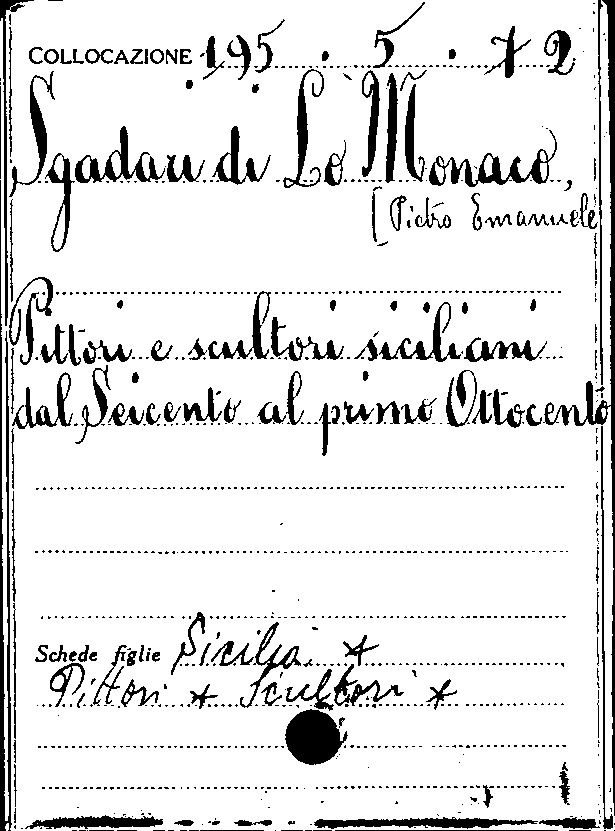 COLLOCAZIONE 195 . 5 . 72
Sgadari di Lo Monaco,
[Pietro Emanuele
Pittori e scultori siciliani
dal Seicento al primo Ottocento
Schede figlie Sicilia *
Pittori * Scultori *